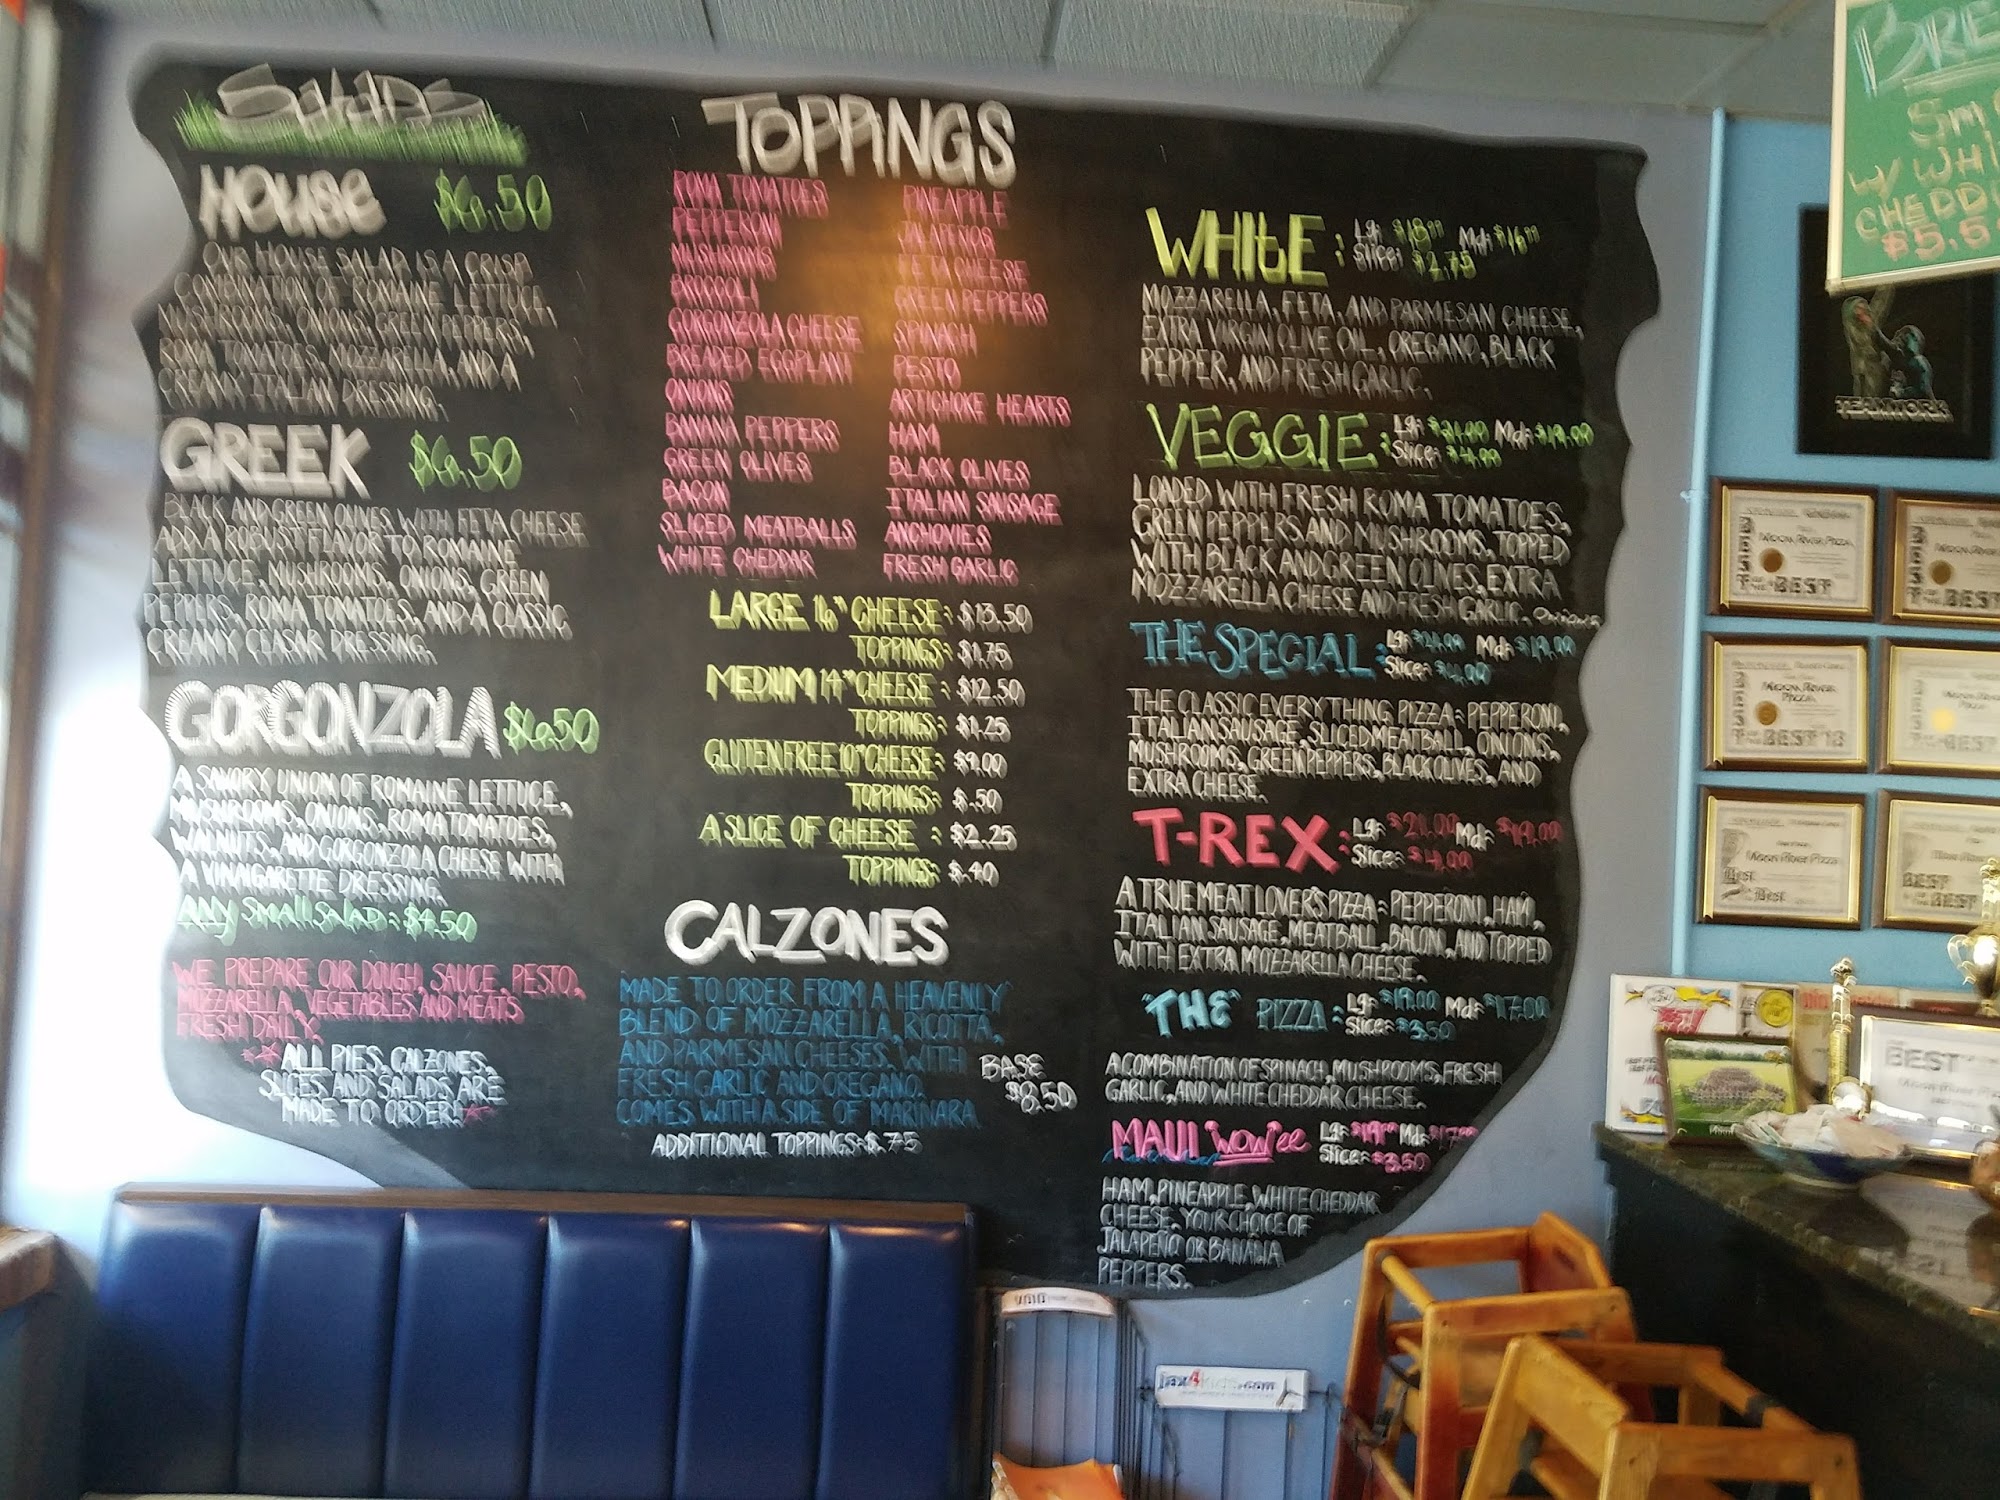 SALADS
HOUSE $6.50
OUR HOUSE SALAD IS A CRISP
COMBINATION OF ROMAINE LETTUCE,
MUSHROOMS, ONIONS, GREEN PEPPERS,
ROMA TOMATOES, MOZZARELLA, AND A
CREAMY ITALIAN DRESSING.
GREEK $6.50
BLACK AND GREEN OLIVES WITH FETA CHEESE
ADD A ROBUST FLAVOR TO ROMAINE
LETTUCE, MUSHROOMS, ONIONS, GREEN
PEPPERS, ROMA TOMATOES, AND A CLASSIC
CREAMY CEASAR DRESSING.
GORGONZOLA $6.50
A SAVORY UNION OF ROMAINE LETTUCE,
MUSHROOMS, ONIONS, ROMA TOMATOES,
WALNUTS, AND GORGONZOLA CHEESE WITH
A VINAIGARETTE DRESSING.
ANY SMALL SALAD: $4.50
WE PREPARE OUR DOUGH, SAUCE, PESTO,
MOZZARELLA, VEGETABLES AND MEATS
FRESH DAILY.
ALL PIES, CALZONES,
SLICES AND SALADS ARE
MADE TO ORDER!
TOPPINGS
ROMA TOMATOES
PEPPERONI
MUSHROOMS
BROCCOLI
GORGONZOLA CHEESE
BREADED EGGPLANT
ONIONS
BANANA PEPPERS
GREEN OLIVES
BACON
SLICED MEATBALLS
WHITE CHEDDAR
PINEAPPLE
JALAPENOS
FETA CHEESE
GREEN PEPPERS
SPINACH
PESTO
ARTICHOKE HEARTS
HAM
BLACK OLIVES
ITALIAN SAUSAGE
ANCHOVIES
FRESH GARLIC
LARGE 16" CHEESE: $13.50
TOPPINGS: $1.75
MEDIUM 14" CHEESE: $12.50
TOPPINGS: $1.25
GLUTEN FREE 10" CHEESE: $9.00
TOPPINGS: $.50
A SLICE OF CHEESE : $2.25
TOPPINGS: $.40
CALZONES
MADE TO ORDER FROM A HEAVENLY
BLEND OF MOZZARELLA, RICOTTA,
AND PARMESAN CHEESES, WITH
FRESH GARLIC AND OREGANO.
COMES WITH A SIDE OF MARINARA
BASE
$8.50
ADDITIONAL TOPPINGS: $.75
WHITE: Lg: $18.00 Md: $16.00
Slice: $2.75
MOZZARELLA, FETA, AND PARMESAN CHEESE,
EXTRA VIRGIN OLIVE OIL, OREGANO, BLACK
PEPPER, AND FRESH GARLIC.
VEGGIE: Lg: $21.00 Md: $19.00
Slice: $4.00
LOADED WITH FRESH ROMA TOMATOES,
GREEN PEPPERS AND MUSHROOMS, TOPPED
WITH BLACK AND GREEN OLIVES, EXTRA
MOZZARELLA CHEESE AND FRESH GARLIC. Onions
THE SPECIAL: Lg: $21.00 Md: $19.00
Slice: $4.00
THE CLASSIC EVERYTHING PIZZA: PEPPERONI,
ITALIAN SAUSAGE, SLICED MEATBALL, ONIONS,
MUSHROOMS, GREEN PEPPERS, BLACK OLIVES, AND
EXTRA CHEESE.
T-REX: Lg: $21.00 Md: $19.00
Slice: $4.00
A TRUE MEAT LOVER'S PIZZA: PEPPERONI, HAM,
ITALIAN SAUSAGE, MEATBALL, BACON, AND TOPPED
WITH EXTRA MOZZARELLA CHEESE.
"THE" PIZZA: Lg: $19.00 Md: $17.00
Slice: $3.50
A COMBINATION OF SPINACH, MUSHROOMS, FRESH
GARLIC, AND WHITE CHEDDAR CHEESE.
MAUI WOWee Lg: $19.00 Md: $17.00
Slice: $3.50
HAM, PINEAPPLE, WHITE CHEDDAR
CHEESE. YOUR CHOICE OF
JALAPEÑO OR BANANA
PEPPERS.
BRE
Sm
W/ WHI
CHEDD
$5.5
TEAMWORK
MOON RIVER PIZZA
BEST
MOON RIVER PIZZA
BEST
MOON RIVER PIZZA
BEST 13
MOON RIVER PIZZA
Moon River Pizza
Best
BEST
BEST
VOID
jax4kids.com